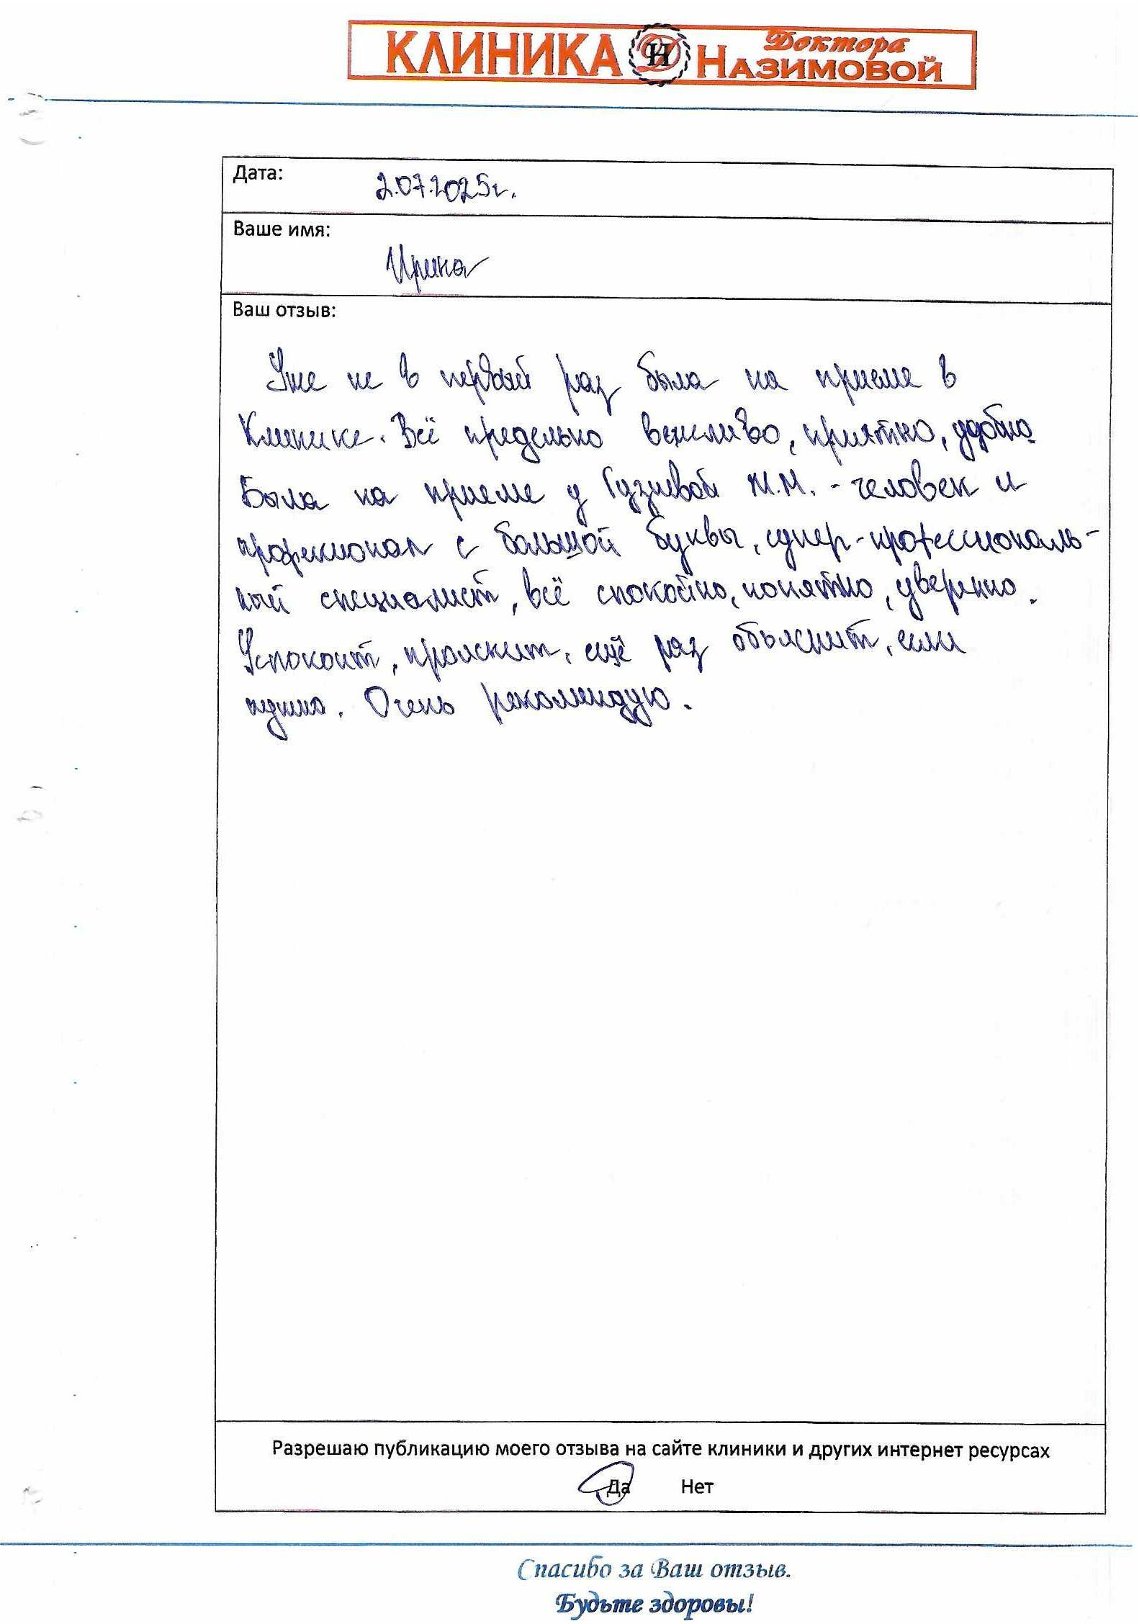 КЛИНИКА Доктора Назимовой
Дата: 2.07.2025г.
Ваше имя:
Ирина
Ваш отзыв:
Уже не в первый раз была на приеме в
Клинике. Всё предельно вежливо, приятно, удобно
Была на приеме у Гузиевой М.М. - человек и
професионал с большой буквы, супер-профессиональ-
ный специалист, всё спокойно, понятно, уверенно.
Успокоит, прояснит, ещё раз объяснит, если
нужно. Очень рекомендую.
Разрешаю публикацию моего отзыва на сайте клиники и других интернет ресурсах
Да Нет
Спасибо за Ваш отзыв.
Будьте здоровы!